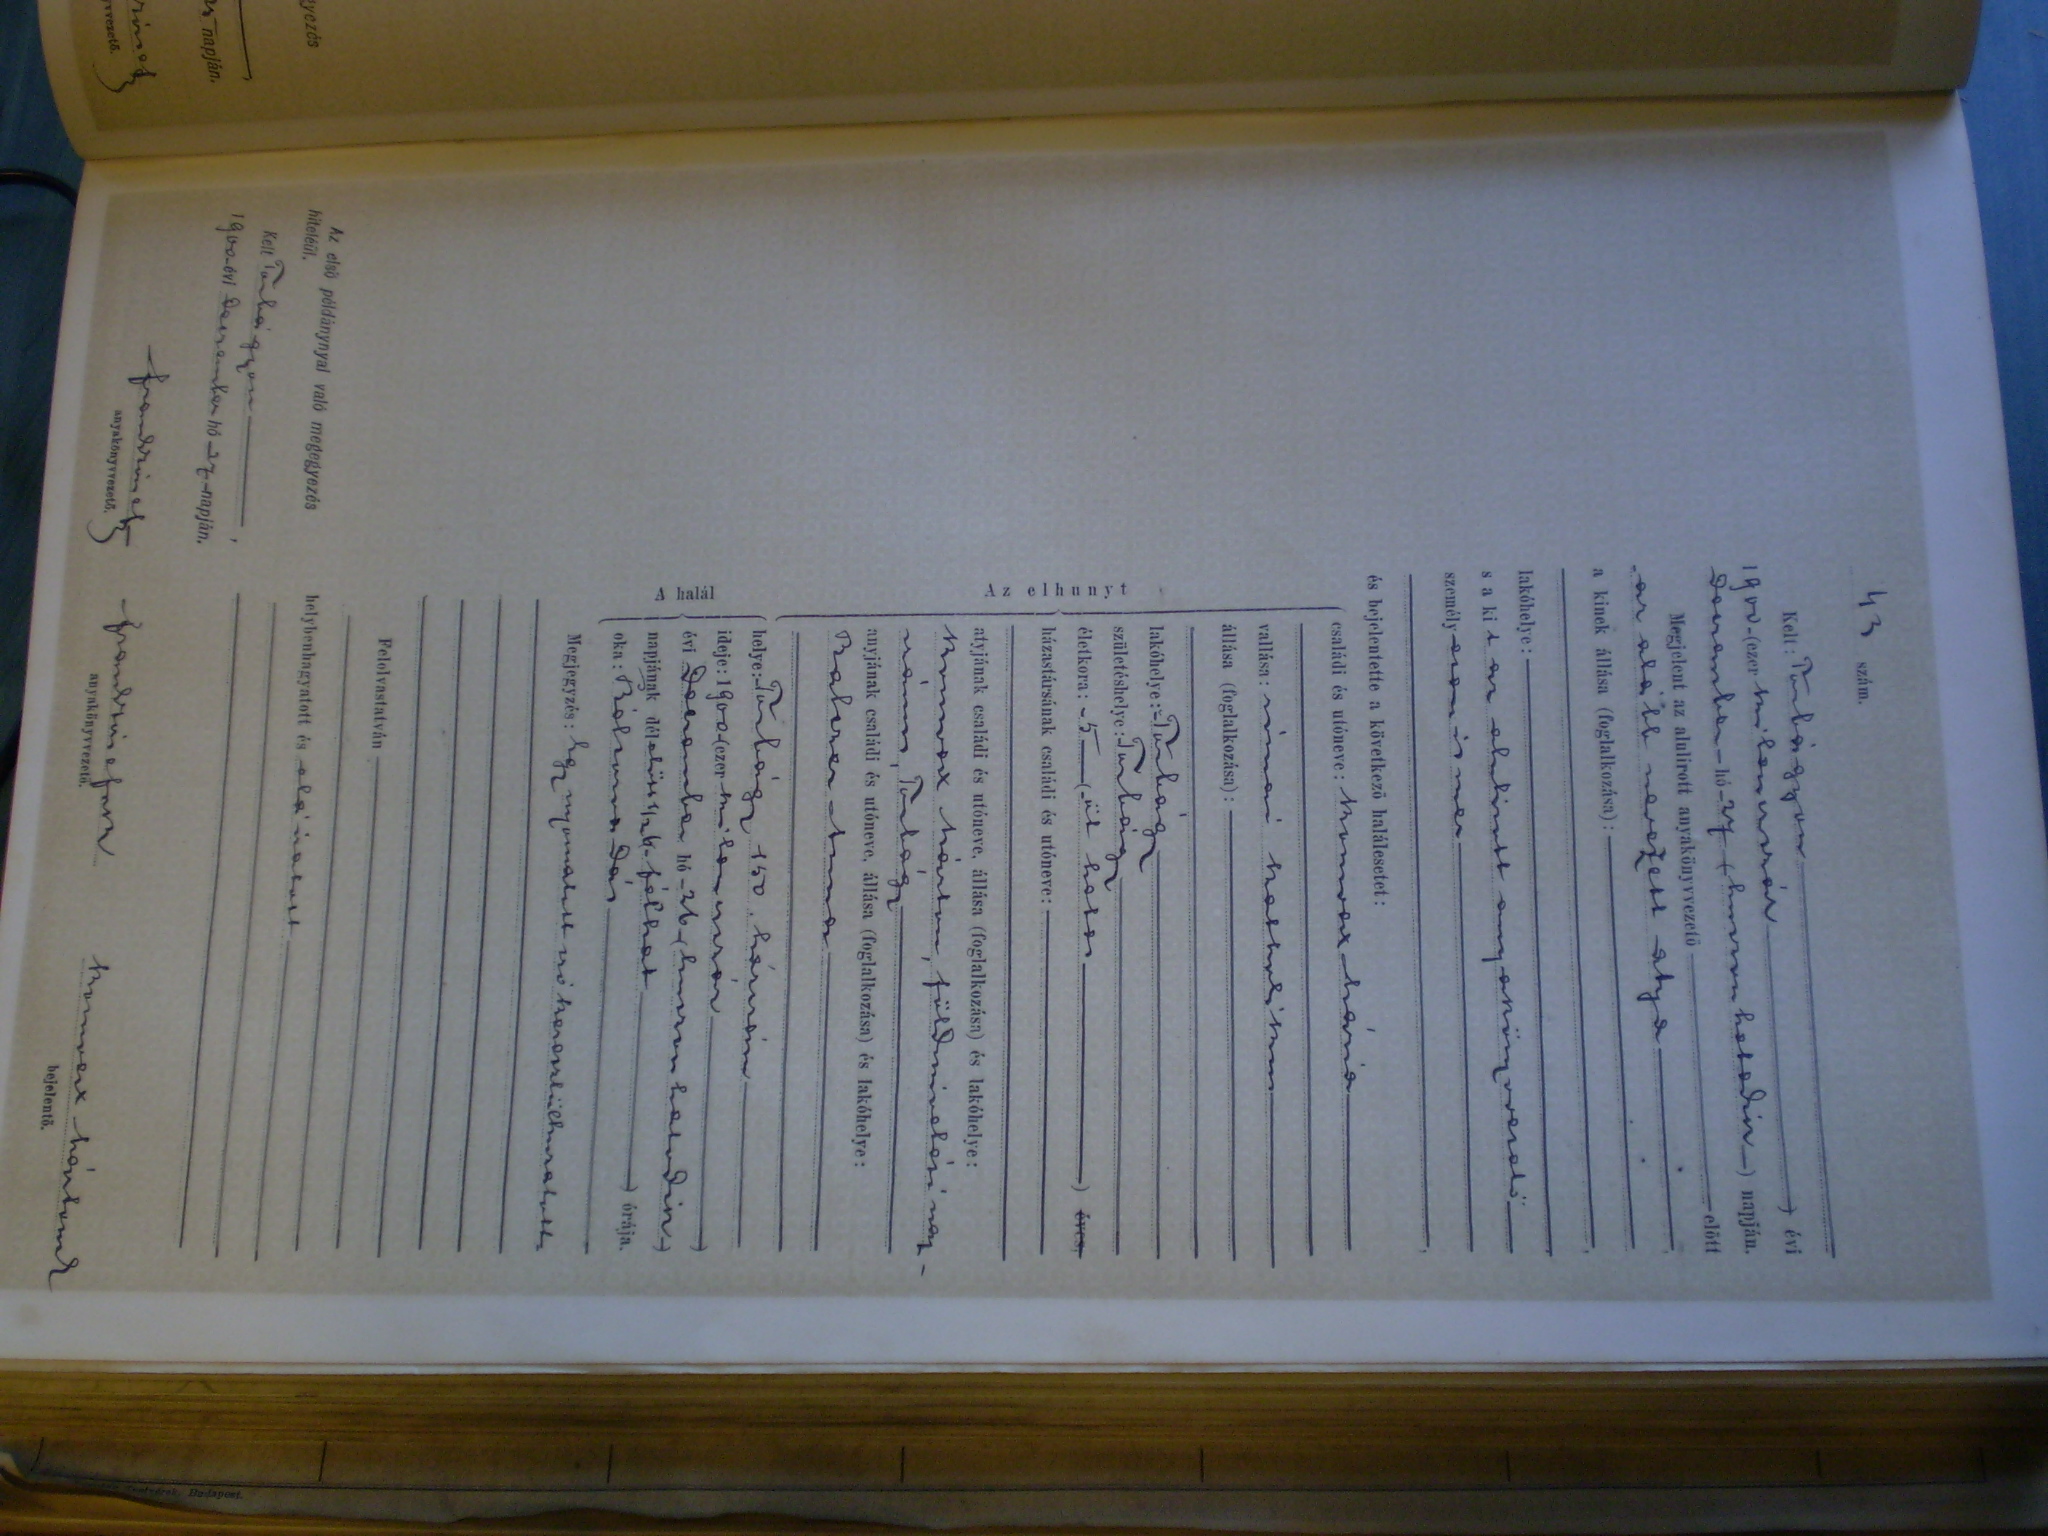 43 szám.
Kelt: Torbágyon
1900 (ezer kilencszáz) évi
December hó 27 (huszonhetedik) napján.
Megjelent az alulírott anyakönyvvezető előtt
az alább nevezett atya
a kinek állása (foglalkozása):
lakóhelye:
s a kit az alulírott anyakönyvvezető
személyesen ismer
és bejelentette a következő halálesetet:
Az elhunyt
családi és utóneve: Mária
vallása: római katholikus
állása (foglalkozása):
lakóhelye: Torbágy
születéshelye: Torbágy
életkora: 5 (öt hetes) éves,
házastársának családi és utóneve:
atyjának családi és utóneve, állása (foglalkozása) és lakóhelye:
Márton, földmivelési nap-
számos, Torbágy
anyjának családi és utóneve, állása (foglalkozása) és lakóhelye:
Anna
A halál
helye: Torbágy 150. házszám
ideje: 1900 (ezer kilencszáz)
évi December hó 26 (huszonhatodik)
napjának délelőtti 1/2 6 félhat) órája.
oka:
Megjegyzés: Egy nyomatott szó keresztülhuzatott.
Felolvastatván
helybenhagyatott és aláíratott
anyakönyvvezető.
Márton
bejelentő.
Az első példánynyal való megegyezés
hiteléül.
Kelt Torbágyon,
1900 évi December hó 27 napján.
anyakönyvvezető.
yezés
napján.
yvvezető.
Budapest.